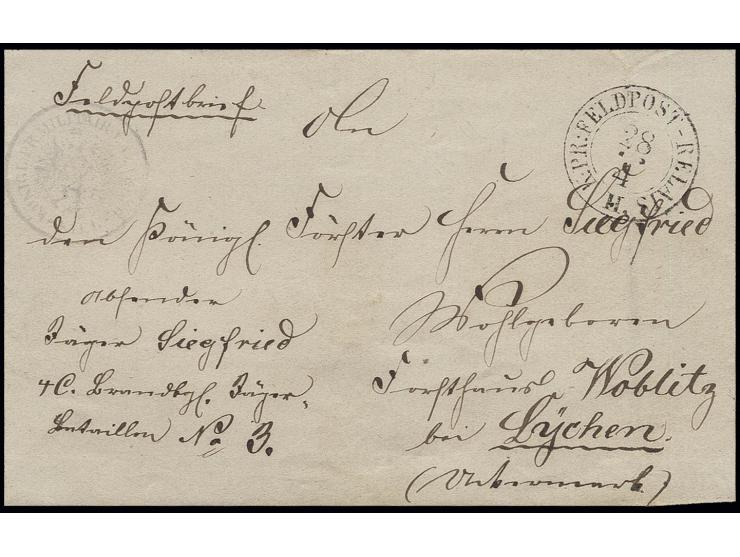 Feldpostbrief.
An
K:PR:FELDPOST-RELAIS
28
4
den Königl. Förster Herrn Siegfried
Absender
Jäger Siegfried
4 C. Brandbg. Jäger-
Bataillon No 3.
Wohlgeboren
Forsthaus Woblitz
bei Lychen.
(Uckermark.)